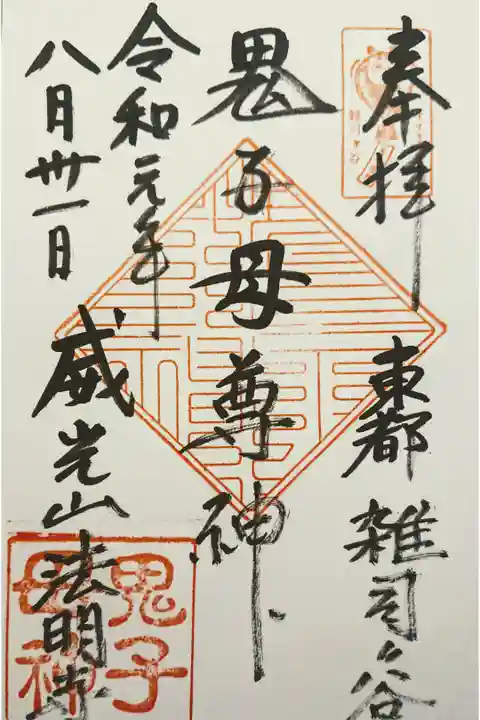 奉拝
東都 雑司ヶ谷
鬼子母尊神
令和元年
八月卅一日
威光山 法明寺
鬼子
母神